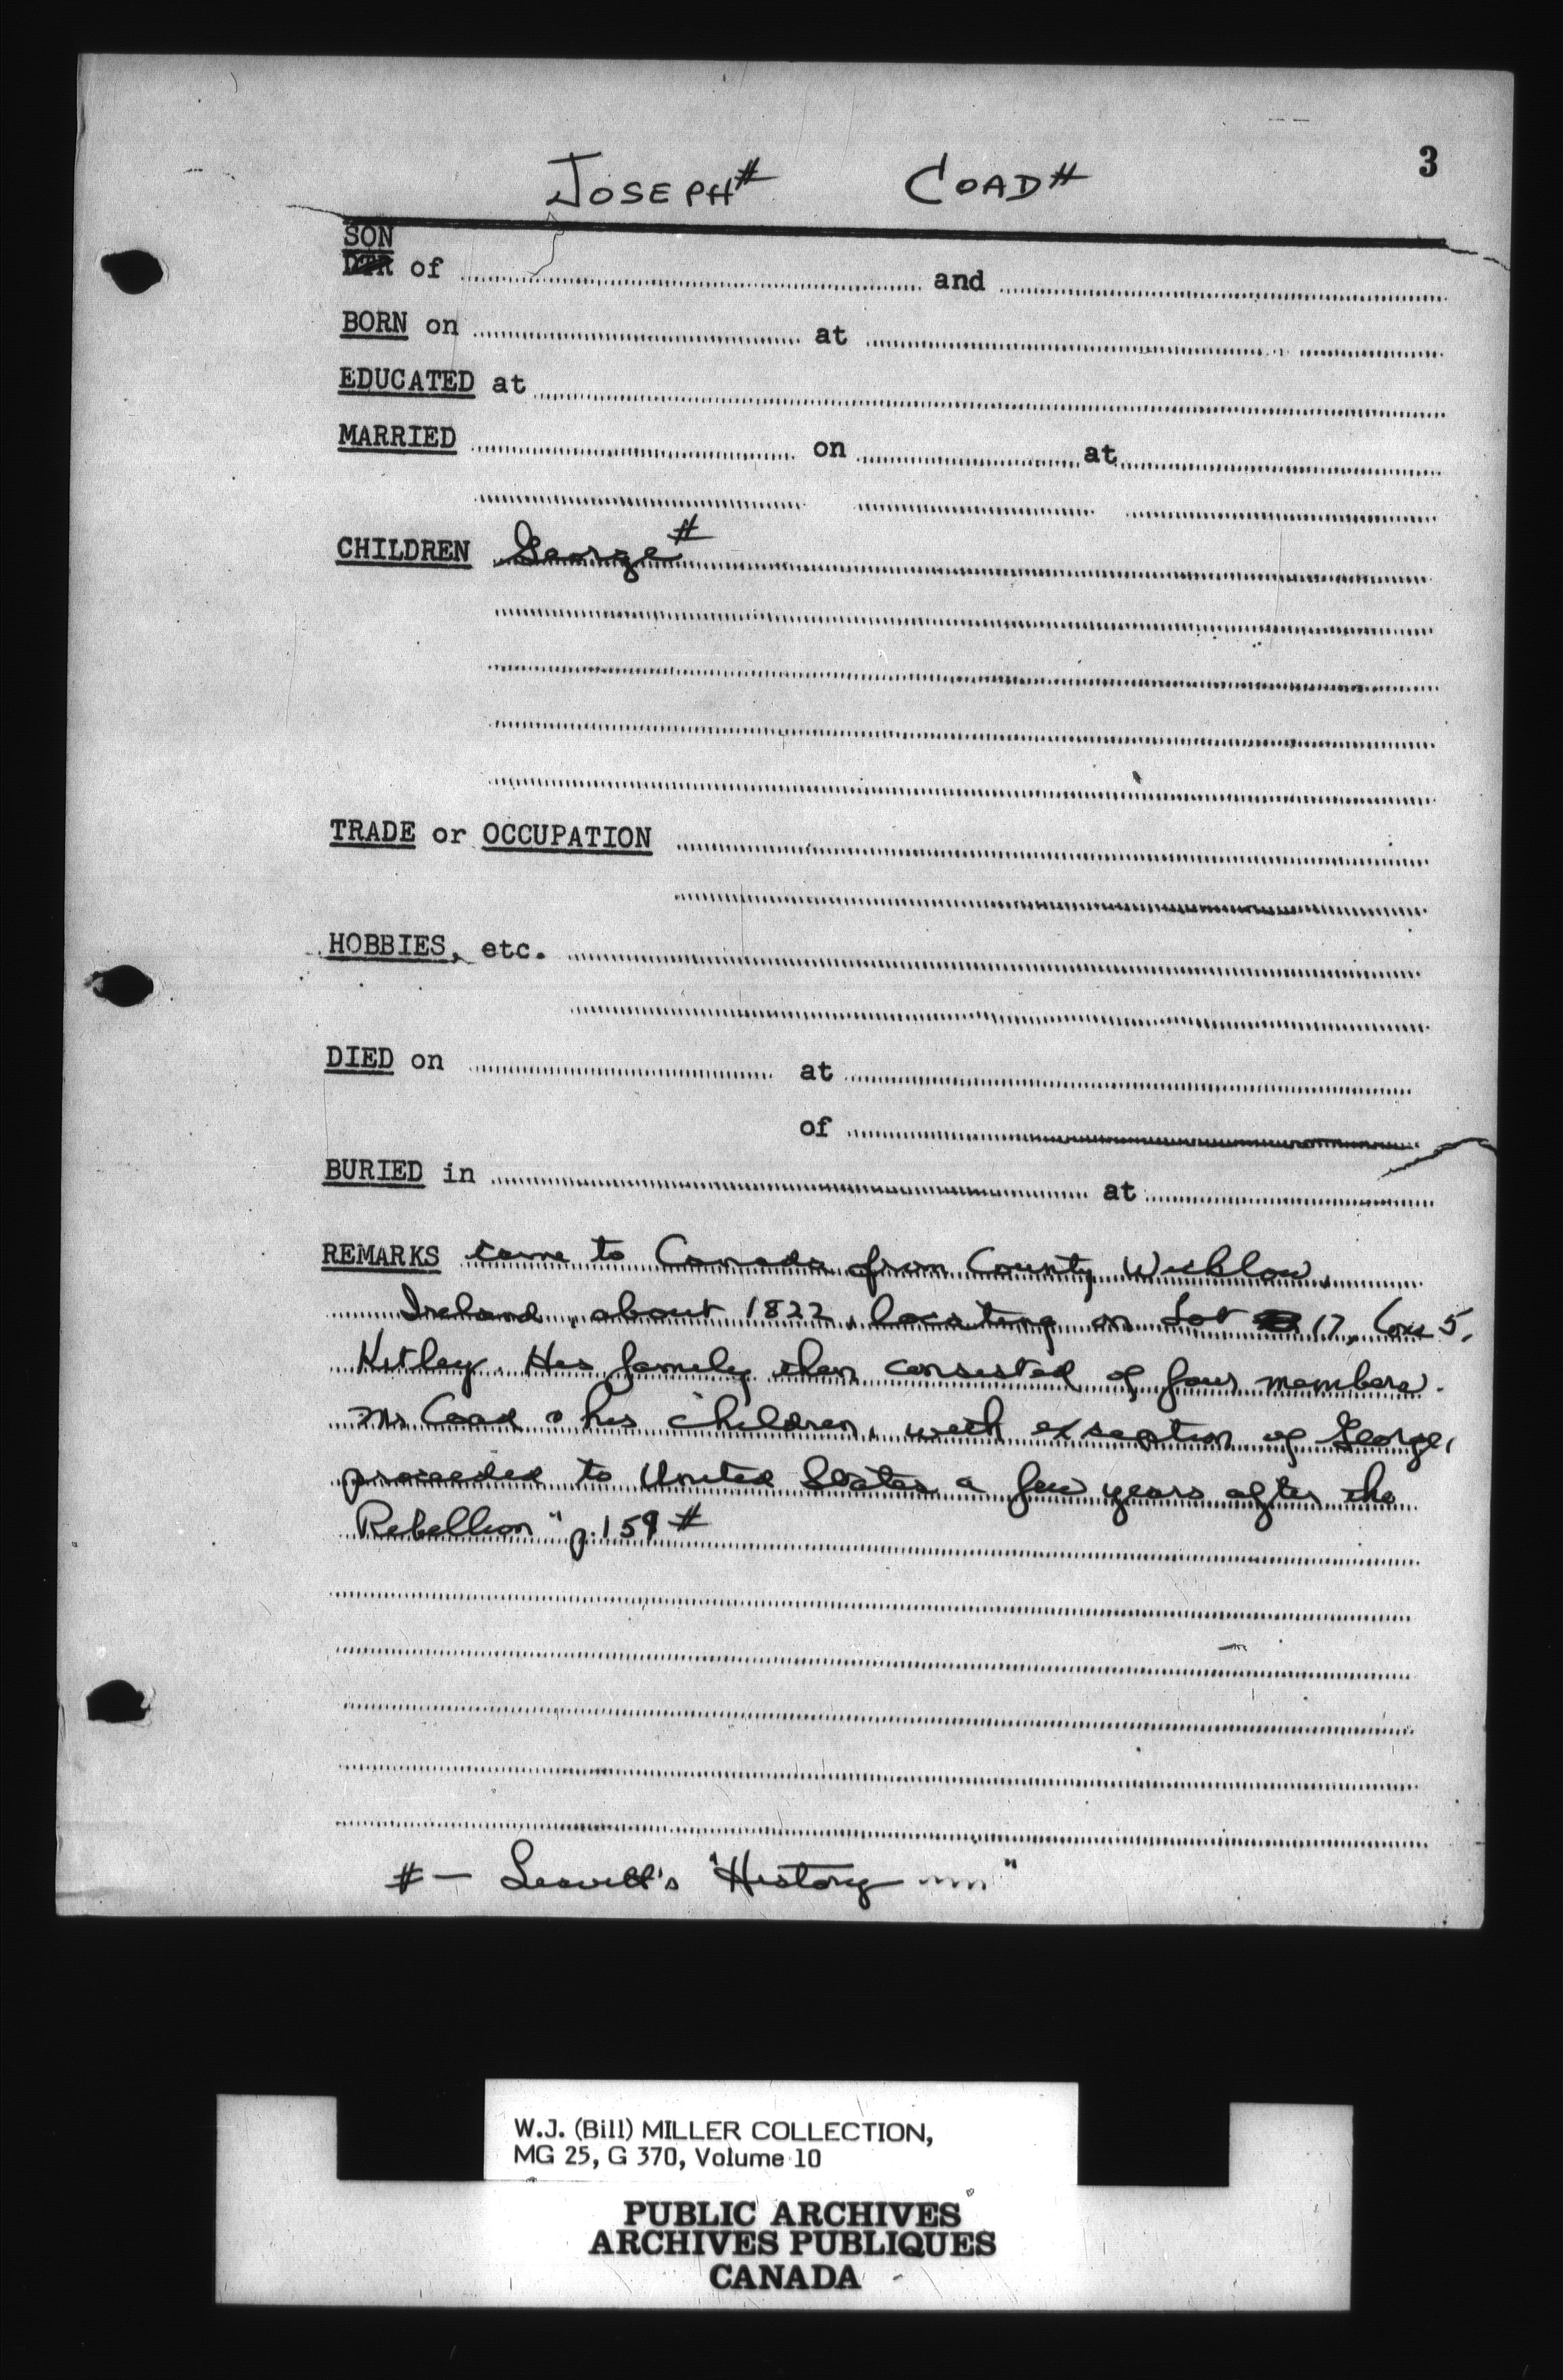 3
JOSEPH# COAD#
SON
DTR of and
BORN on at
EDUCATED at
MARRIED on at
CHILDREN George#
TRADE or OCCUPATION
HOBBIES, etc.
DIED on at
of
BURIED in at
REMARKS came to Canada from County Wicklow,
Ireland, about 1822, locating on Lot 17, Con 5,
Kitley. His family then consisted of four members.
Mr Coad & his children, with exception of George,
proceeded to United States a few years after the
Rebellion" p. 159 #
# — Leavitt's "History "
W.J. (Bill) MILLER COLLECTION,
MG 25, G 370, Volume 10
PUBLIC ARCHIVES
ARCHIVES PUBLIQUES
CANADA